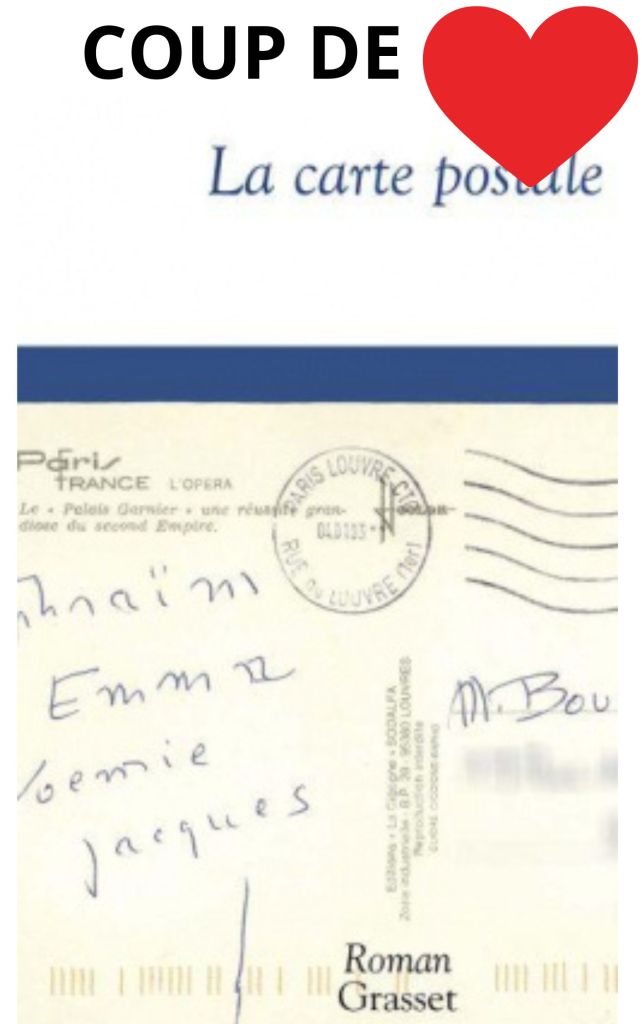 COUP DE
La carte postale
Paris
FRANCE L'OPERA
Le « Palais Garnier » une réussite gran-
diose du second Empire.
PARIS LOUVRE CTC
RUE DU LOUVRE (1er)
phraïm
Emma
Noemie
Jacques
M. Bou
Editions « La Cigogne » SODALFA
Zone industrielle - B.P. 28 - 95380 LOUVRES
Reproduction interdite
Roman
Grasset